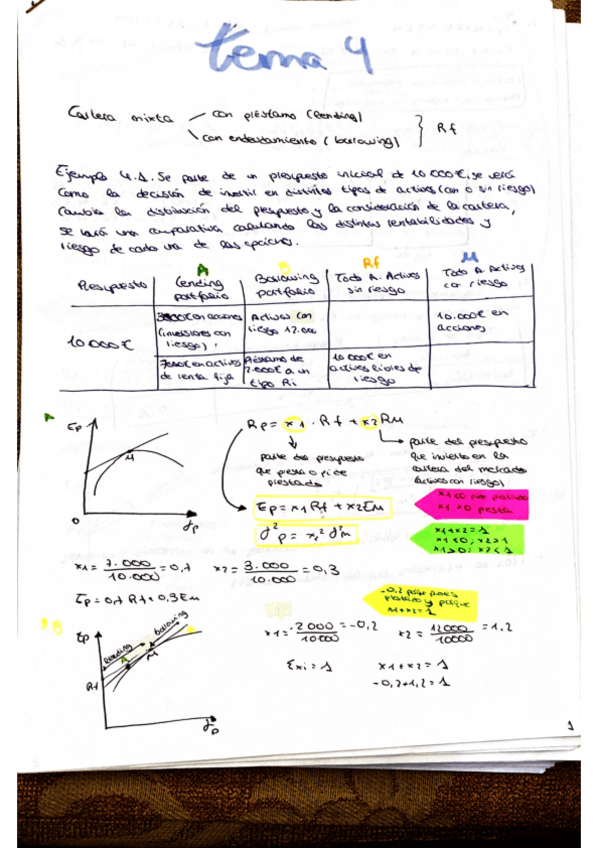 tema 4
Cartera mixta
con préstamo (lending)
con endeudamiento (borrowing)
Rf
Ejemplo 4.1. Se parte de un presupuesto inicial de 10 000€, se verá
como la decisión de invertir en distintos tipos de activos (con o sin riesgo)
cambia la distribución del presupuesto y la consideración de la cartera,
se hará una comparativa calculando las distintas rentabilidades y
riesgo de cada una de las opciones.
A B Rf M
Presupuesto
Lending portfolio
Borrowing portfolio
Todo A. Activos sin riesgo
Todo A. Activos con riesgo
10.000€
3000€ en acciones
(inversiones con
riesgo)
Activos con
riesgo 12.000
10.000€ en
acciones
7000€ en activos
de renta fija
Préstamo de
2.000€ a un
tipo Ri
10 000€ en
activos libres de
riesgo
A
Ep
M
0
σp
Rp = x1 · Rf + x2 RM
parte del presupuesto
que presta o pide
prestado
parte del presupuesto
que invierto en la
cartera del mercado
(activos con riesgo)
Ep = x1 Rf + x2 EM
σ²p = x2² σ²m
x1<0 pide prestado
x1>0 presta
x1+x2=1
x1<0; x2>1
x1>0; x2<1
x1 = 7.000/10.000 = 0,7
x2 = 3.000/10.000 = 0,3
Ep = 0,7 Rf + 0,3 EM
-0,2 porque
y porque
x1+x2=1
B
Ep
lending
borrowing
A
M
B
Rf
σp
x1 = -2000/10000 = -0,2
x2 = 12000/10000 = 1,2
Σxi = 1
x1+x2 = 1
-0,2+1,2 = 1
1